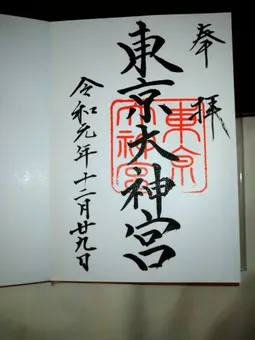 奉拝
東京大神宮
東京大神宮
令和元年十二月廿九日